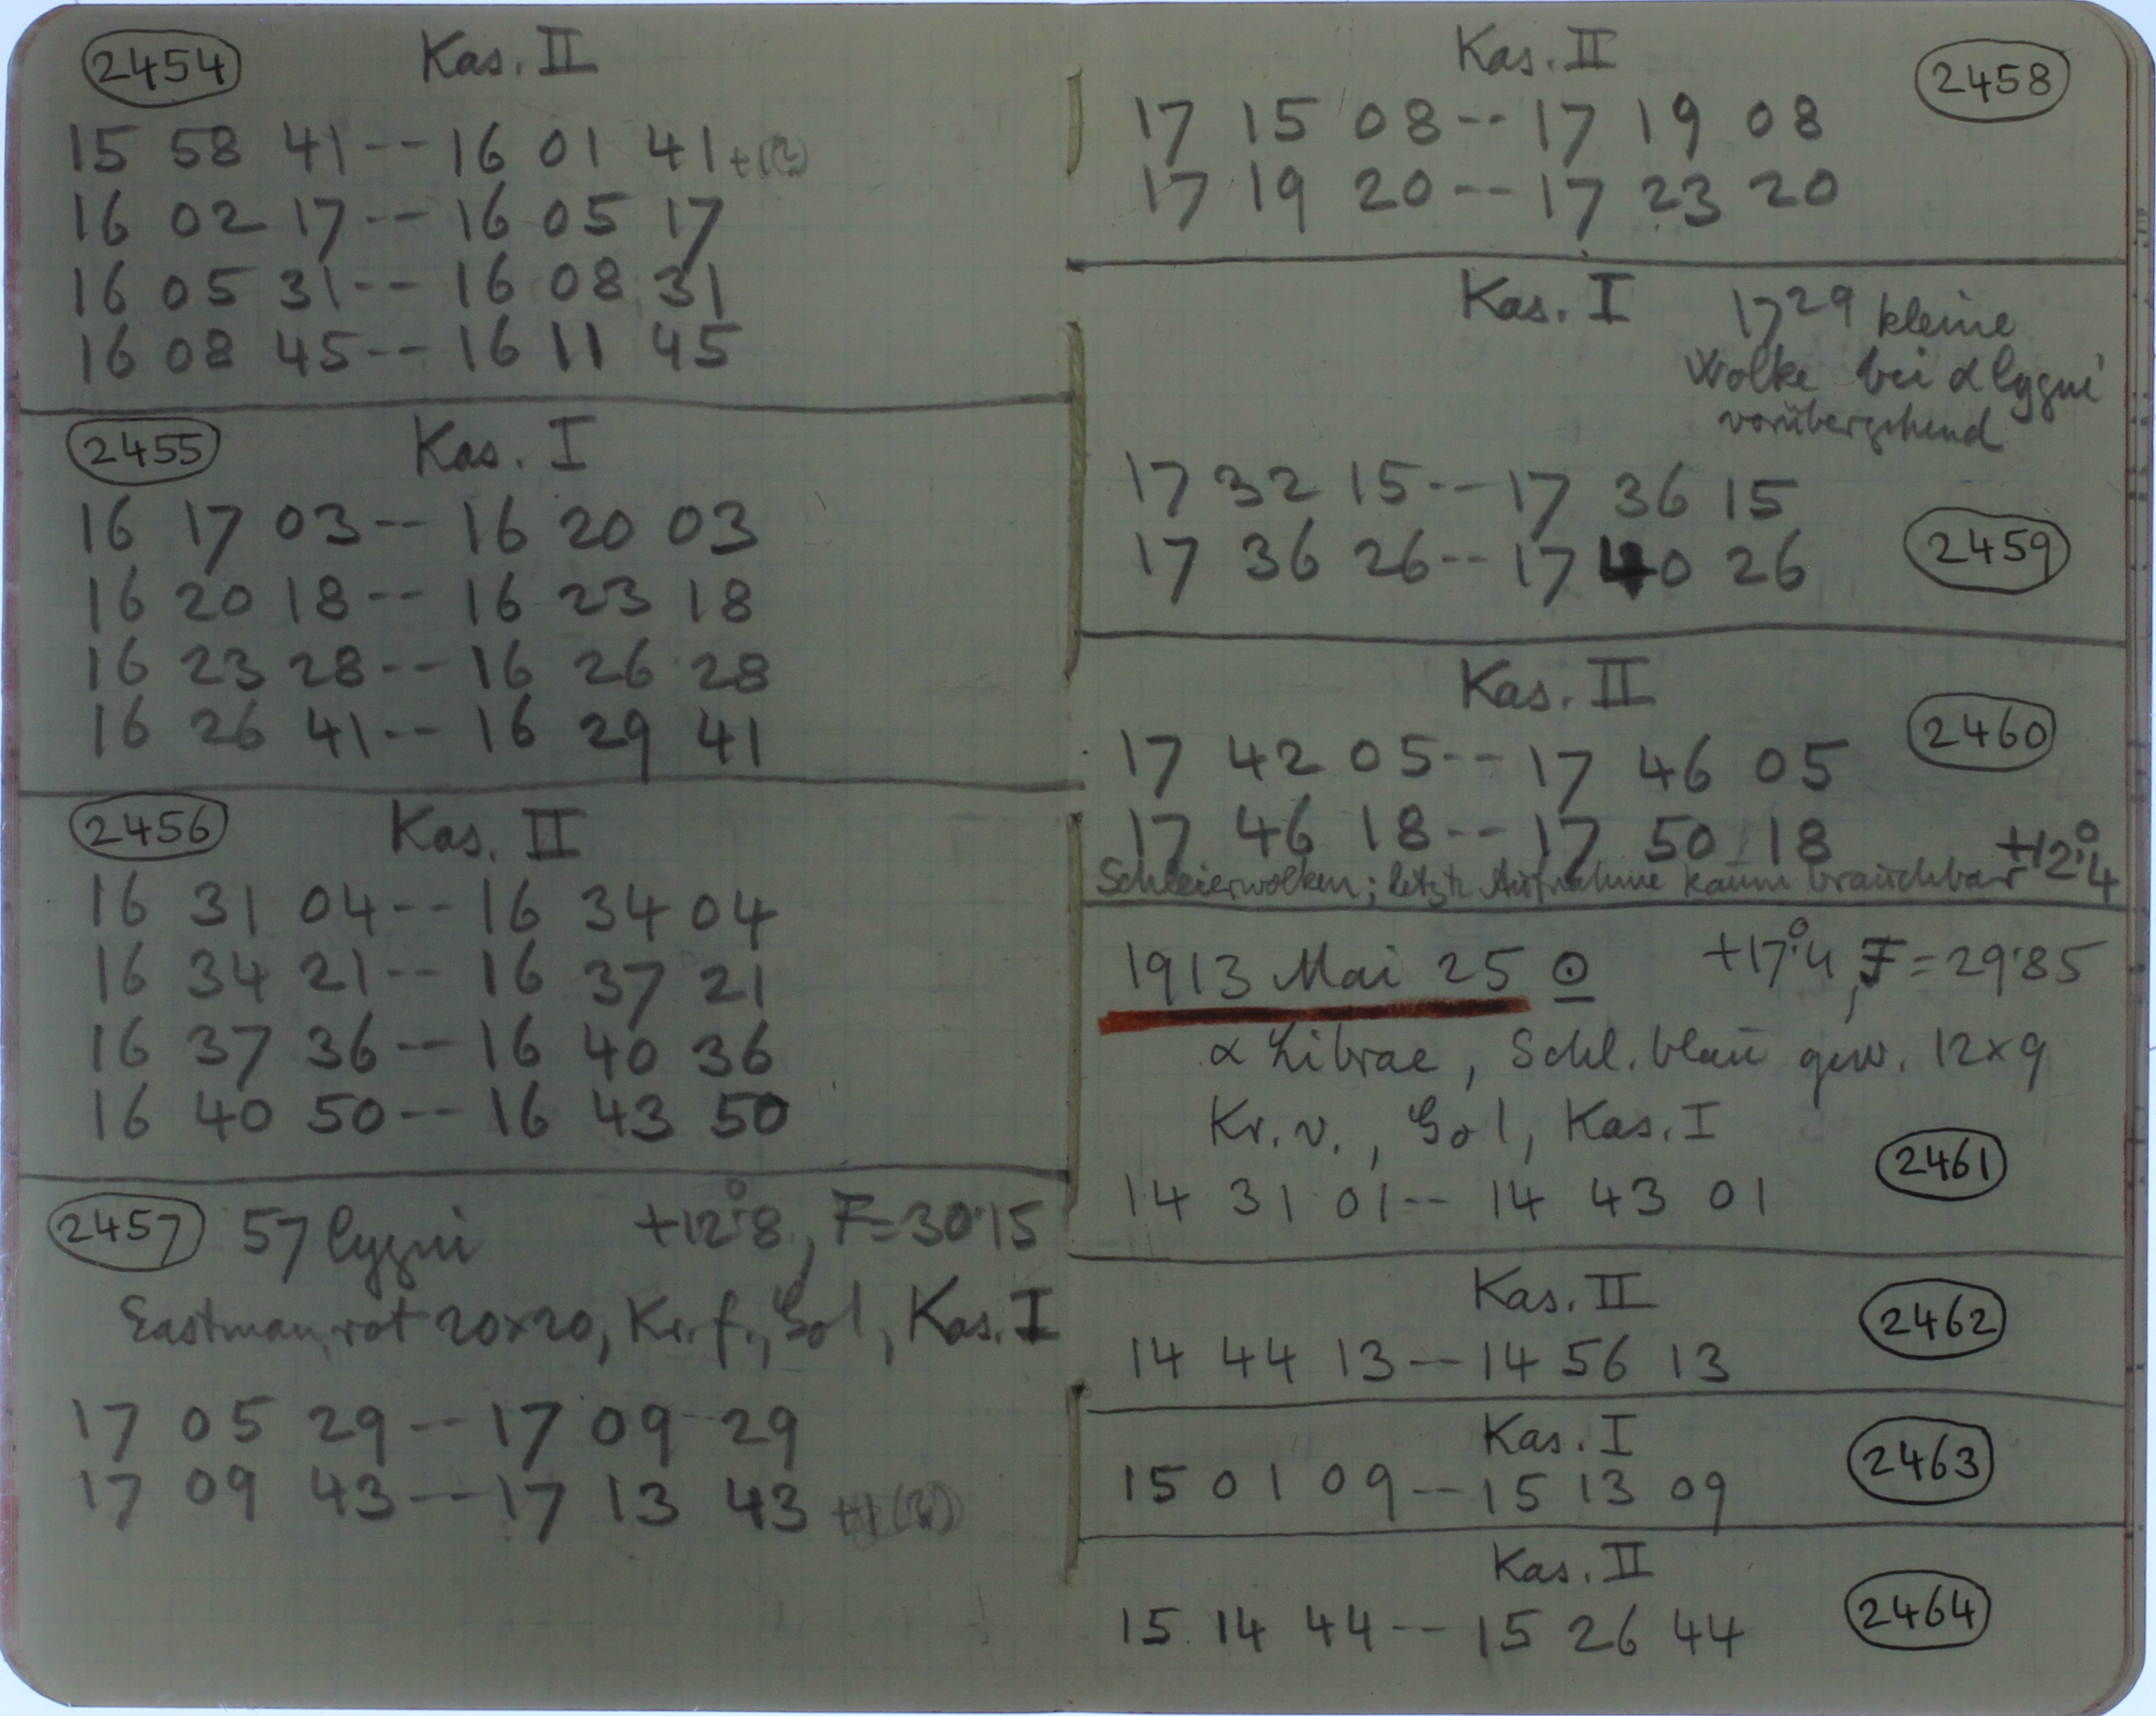 2454 Kas. II
15 58 41 -- 16 01 41
16 02 17 -- 16 05 17
16 05 31 -- 16 08 31
16 08 45 -- 16 11 45
2455 Kas. I
16 17 03 -- 16 20 03
16 20 18 -- 16 23 18
16 23 28 -- 16 26 28
16 26 41 -- 16 29 41
2456 Kas. II
16 31 04 -- 16 34 04
16 34 21 -- 16 37 21
16 37 36 -- 16 40 36
16 40 50 -- 16 43 50
2457 57 Cygni +12°.8, F=30.15
Eastman, rot 20×20, Kr. f., Gol, Kas. I
17 05 29 -- 17 09 29
17 09 43 -- 17 13 43
Kas. II 2458
17 15 08 -- 17 19 08
17 19 20 -- 17 23 20
Kas. I 17 29 kleine
Wolke bei α Cygni
vorübergehend
17 32 15 -- 17 36 15
17 36 26 -- 17 40 26 2459
Kas. II
2460
17 42 05 -- 17 46 05
17 46 18 -- 17 50 18 +12°.4
Schleierwolken; letzte Aufnahme kaum brauchbar
1913 Mai 25 ☉ +17°.4, F=29.85
α Librae, Schl. blau gew. 12×9
Kr. v., Gol, Kas. I
14 31 01 -- 14 43 01 2461
Kas. II 2462
14 44 13 -- 14 56 13
Kas. I 2463
15 01 09 -- 15 13 09
Kas. II
15 14 44 -- 15 26 44 2464